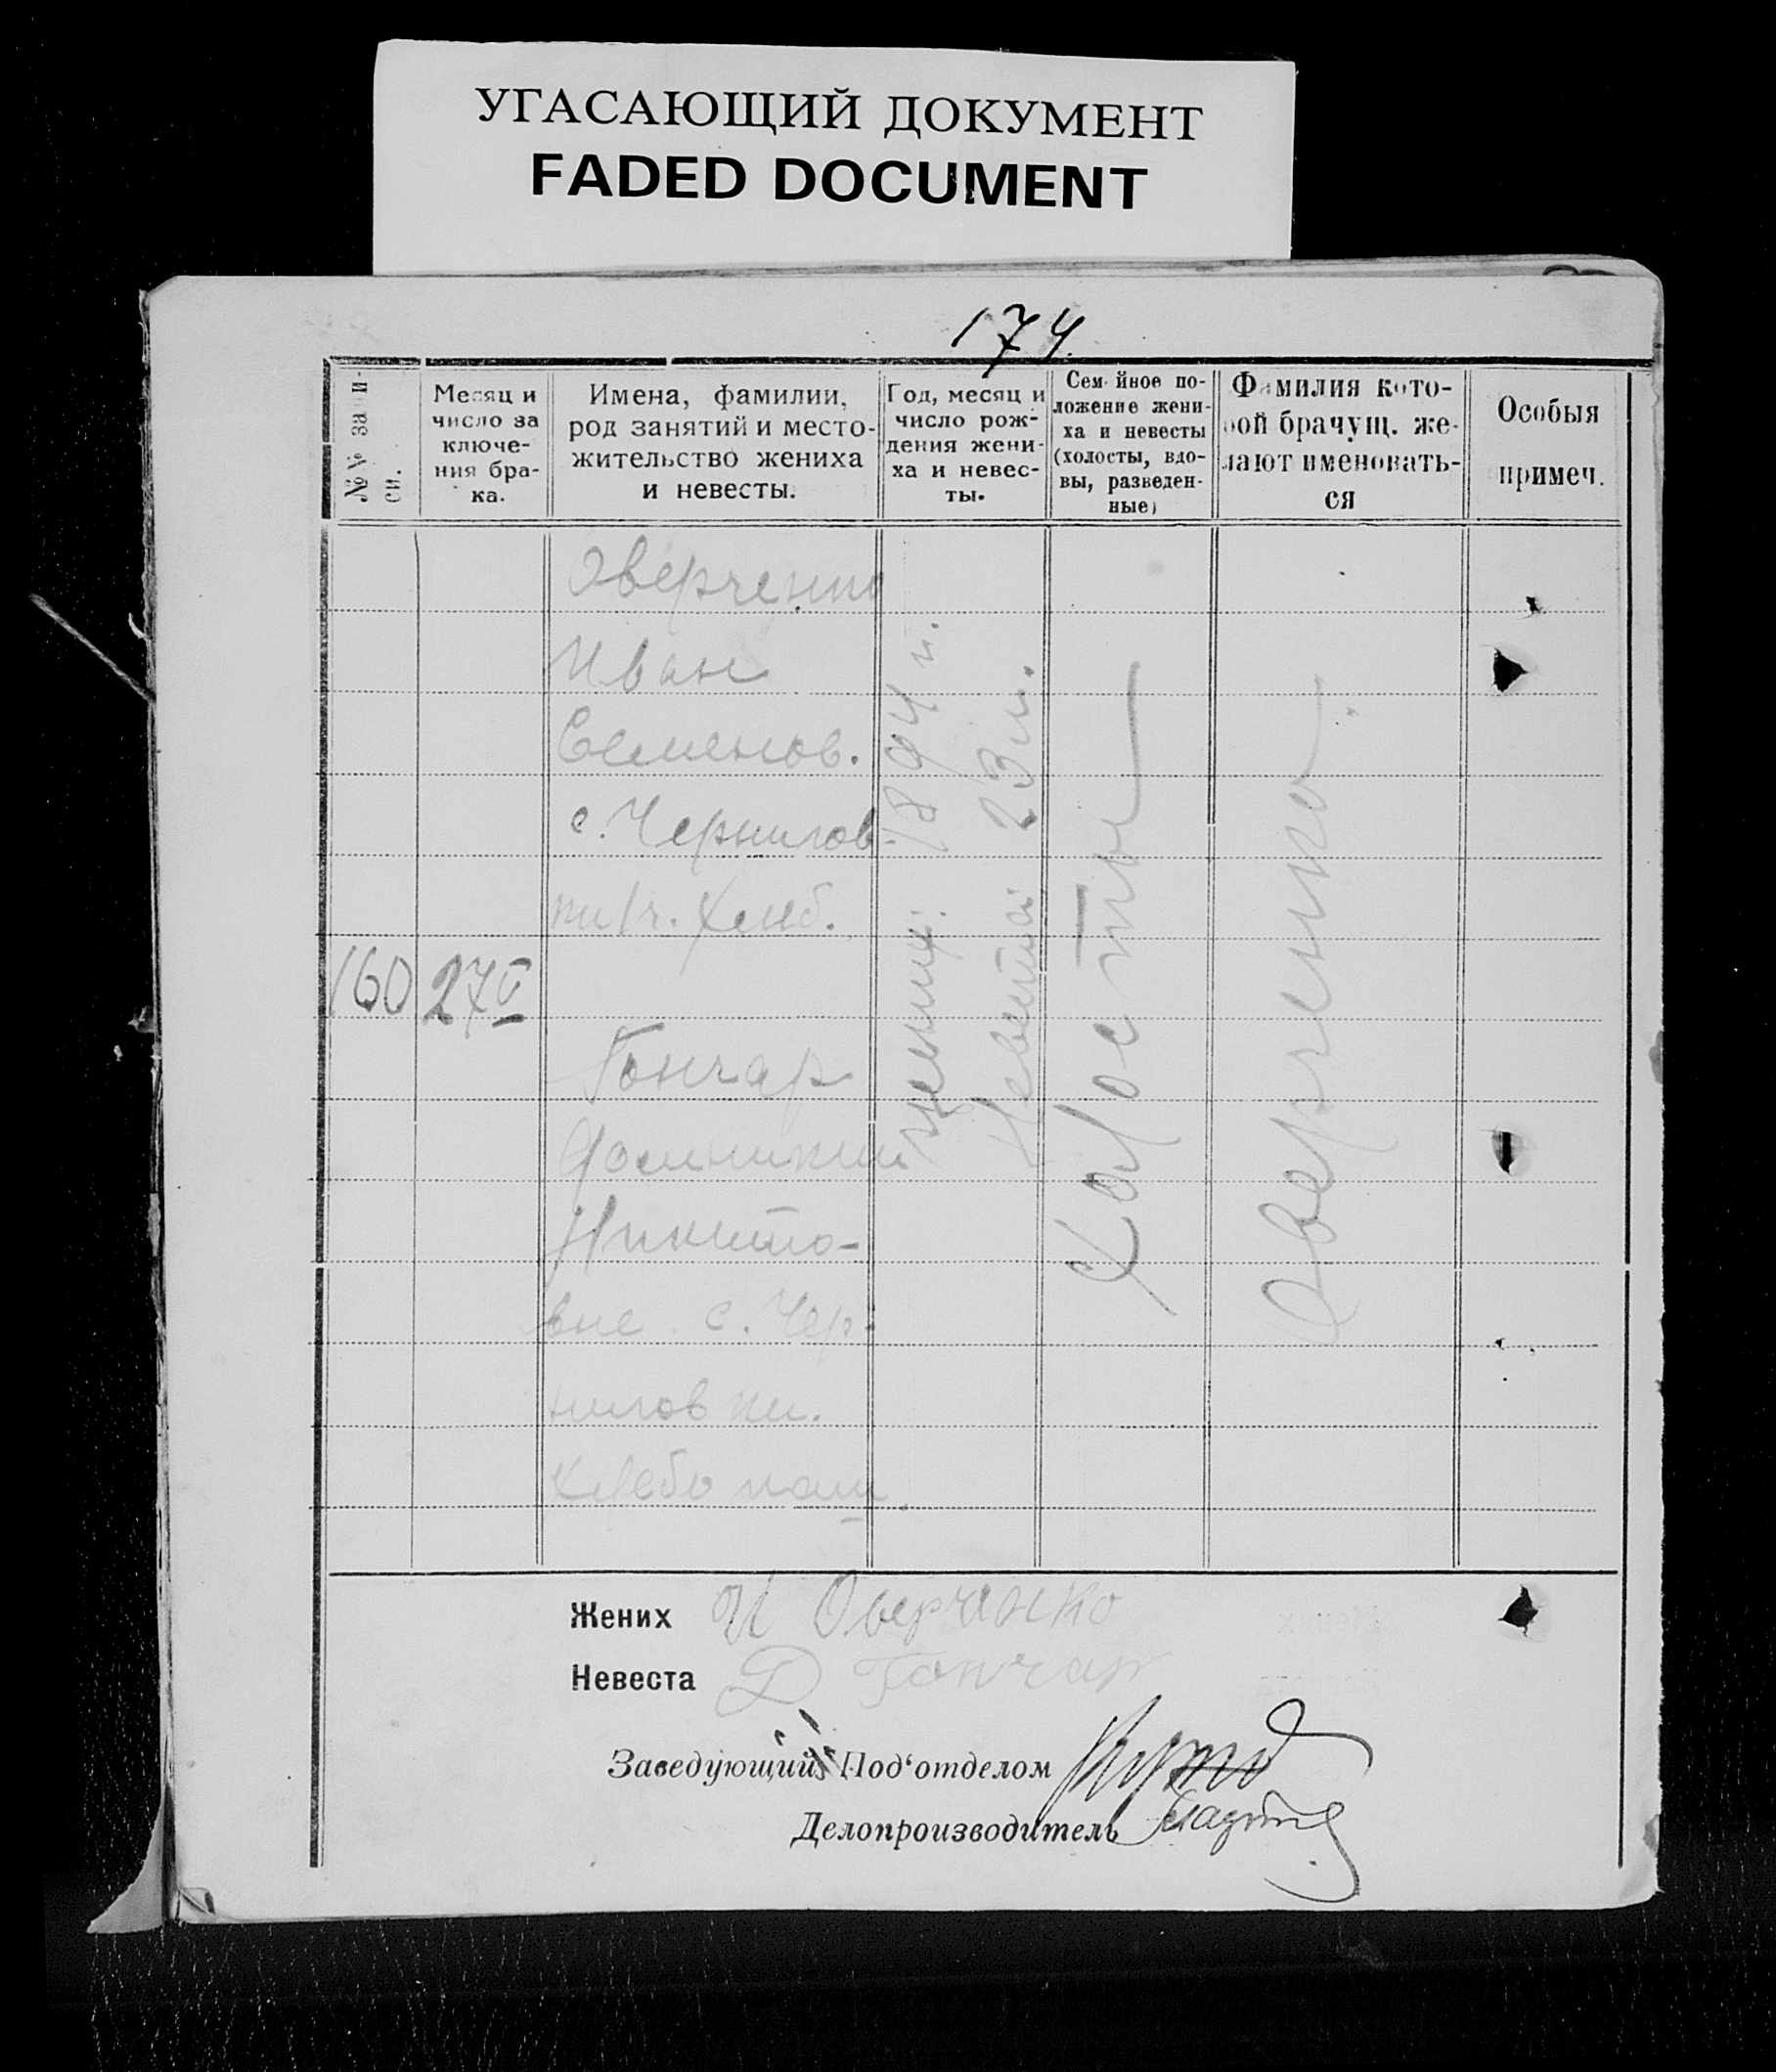 УГАСАЮЩИЙ ДОКУМЕНТ
FADED DOCUMENT
174.
№№ за и-
си.
Месяц и
число за
ключе-
ния бра-
ка.
Имена, фамилии,
род занятий и место-
жительство жениха
и невесты.
Год, месяц и
число рож-
дения жени-
ха и невес-
ты.
Сем йное по-
ложение жени-
ха и невесты
(холосты, вдо-
вы, разведен-
ные)
Фамилия кото-
рой брачущ. же-
лают именовать-
ся
Особыя
примеч.
160
27 V
Оверченко
Иван
Семенов.
с. Чернигов-
Гончар
Никито-
вне с. Чер-
нигов
Хлебопаш.
Жених 1894
Невеста 23 л.
Холосты
Оверченко
Жених И Оверченко
Невеста Д Гончар
Заведующий Под‘отделом
Делопроизводитель